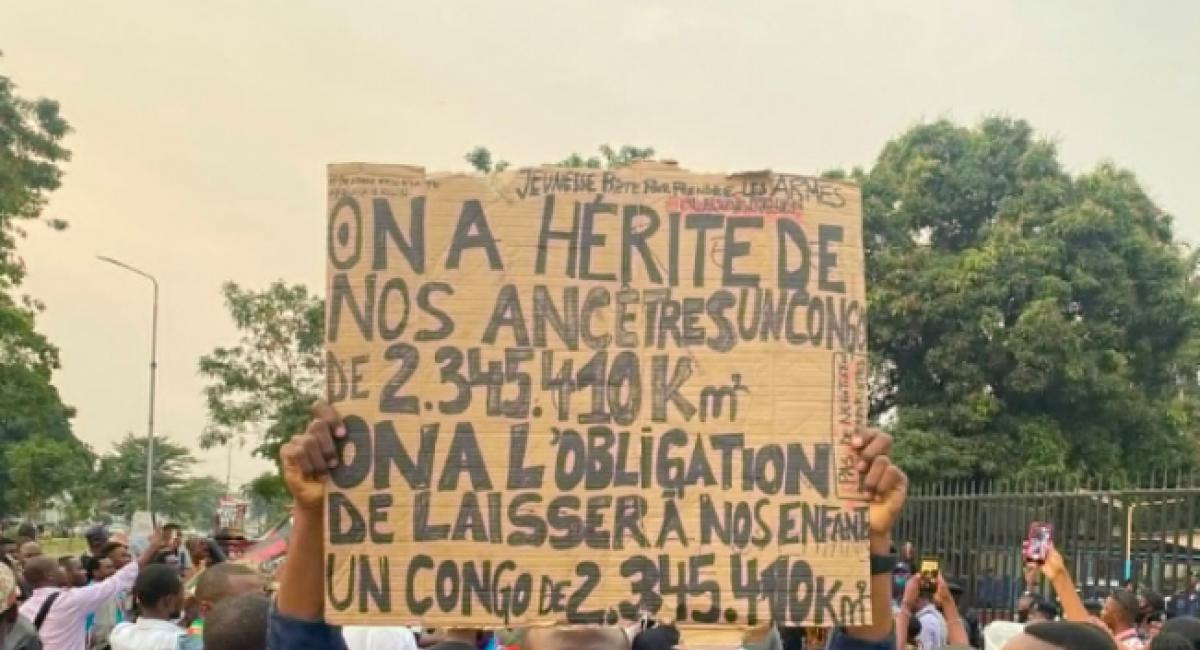 JEUNESSE PRÊTE POUR PRENDRE LES ARMES
ON A HÉRITE DE
NOS ANCETRES UN CONGO
DE 2.345.410 Km²
ON A L'OBLIGATION
DE LAISSER À NOS ENFANTS
UN CONGO DE 2.345.410 Km²
PAS DE